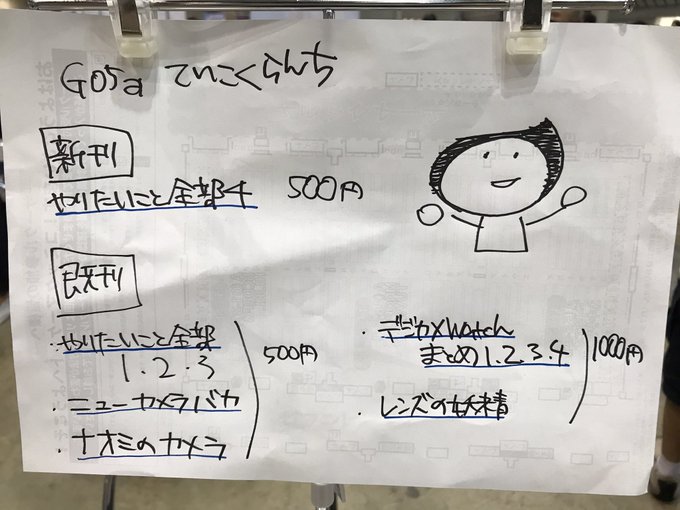 G05a ていこくらんち
新刊
やりたいこと全部4 500円
既刊
・やりたいこと全部
1・2・3
・ニューカメラバカ
・ナオミのカメラ
500円
・デジカメWatch
まとめ1.2.3.4
・レンズの妖精
1000円